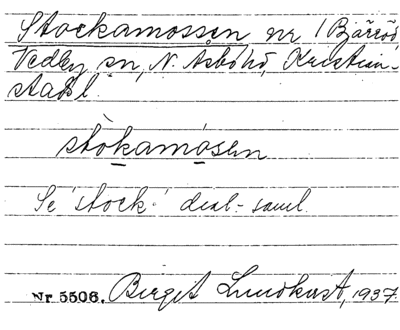 Stockamossen nr 1 Bjärröd
Vedby sn, N. Åsbo hd, Kristian-
stads l.
stòkamòsen
Se 'stock-' dial-saml.
Nr 5506. Birgit Lundkvist, 1937.